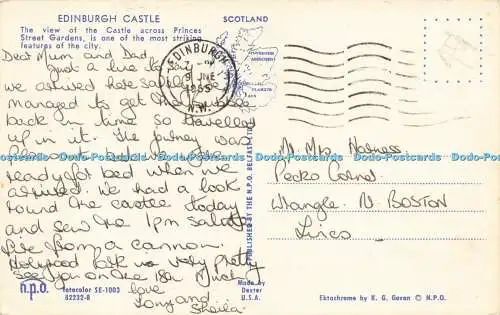 EDINBURGH CASTLE
SCOTLAND
The view of the Castle across Princes
Street Gardens, is one of the most striking
features of the city.
Dear Mum and Dad,
Just a line to
we arrived here safely. We
managed to get the
back in time so travelled
up in it. The journey was
but we were
ready for bed when we
arrived. We had a look
round the castle today
and saw the 1pm salute
fire from a cannon.
Holyrood Park was very pretty
See you on the 18th. Much
love
Tony and
Sheila.
EDINBURGH
9 JNE
1965
N.W.
PUBLISHED BY THE N.P.O. BELFAST LTD.
Mr. Mrs. Harness
Pecko Corner
Wrangle. N. BOSTON
Lincs
n.p.o.
Totacolor SE-1003
82232-B
Made by
Dexter
U.S.A.
Ektachrome by K. G. Gavan © N.P.O.